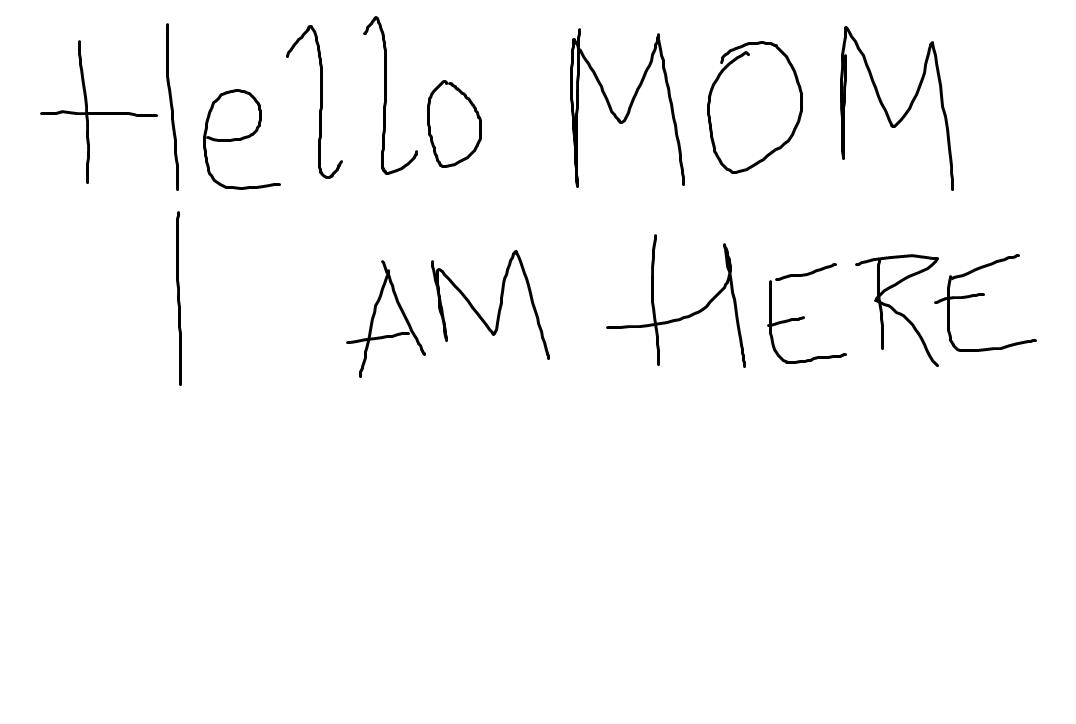 Hello MOM
I AM HERE